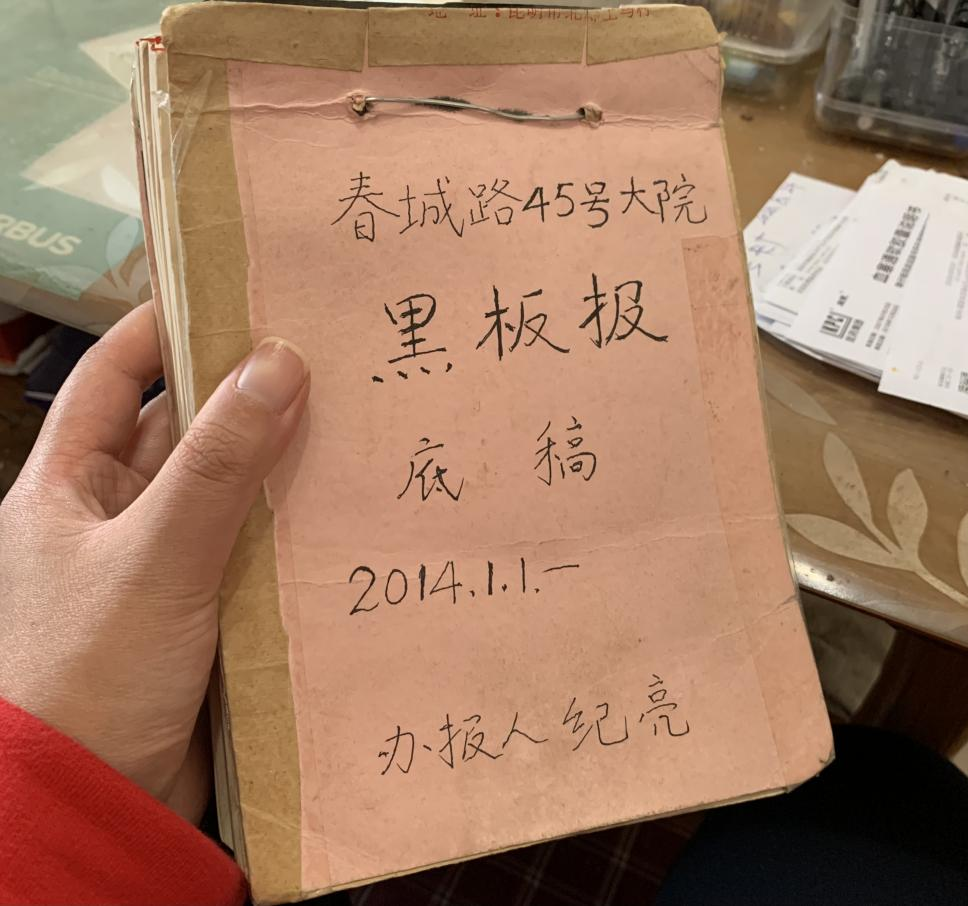 地 址:昆明市北郊上马村
春城路45号大院
黑板报
底稿
2014.1.1.一
办报人纪亮
RBUS